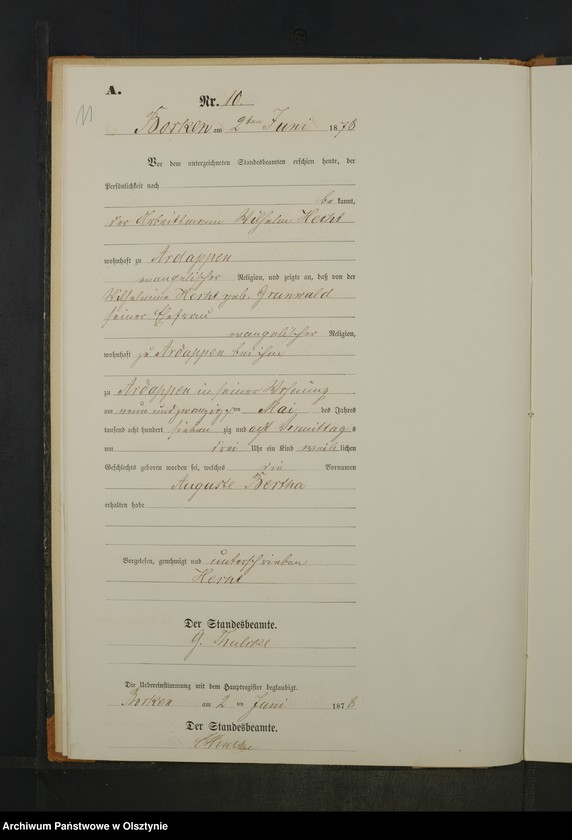 A.
11
Nr. 10.
Borken am 2ten Juni 1878
Vor dem unterzeichneten Standesbeamten erschien heute, der
Persönlichkeit nach
be kannt,
der Arbeitsmann Wilhelm
wohnhaft zu Ardappen
evangelischer Religion, und zeigte an, daß von der
Wilhelmine geb. Grunwald
seiner Ehefrau
evangelischer Religion,
wohnhaft zu Ardappen bei ihm
zu Ardappen in seiner Wohnung
am neun und zwanzigsten Mai des Jahres
tausend acht hundert sieben zig und acht Vormittag s
um drei Uhr ein Kind weib lichen
Geschlechts geboren worden sei, welches die Vornamen
Auguste Bertha
erhalten habe
Vorgelesen, genehmigt und unterschrieben
Der Standesbeamte.
G.
Die Uebereinstimmung mit dem Hauptregister beglaubigt.
Borken am 2 ten Juni 1878
Der Standesbeamte.
Archiwum Państwowe w Olsztynie